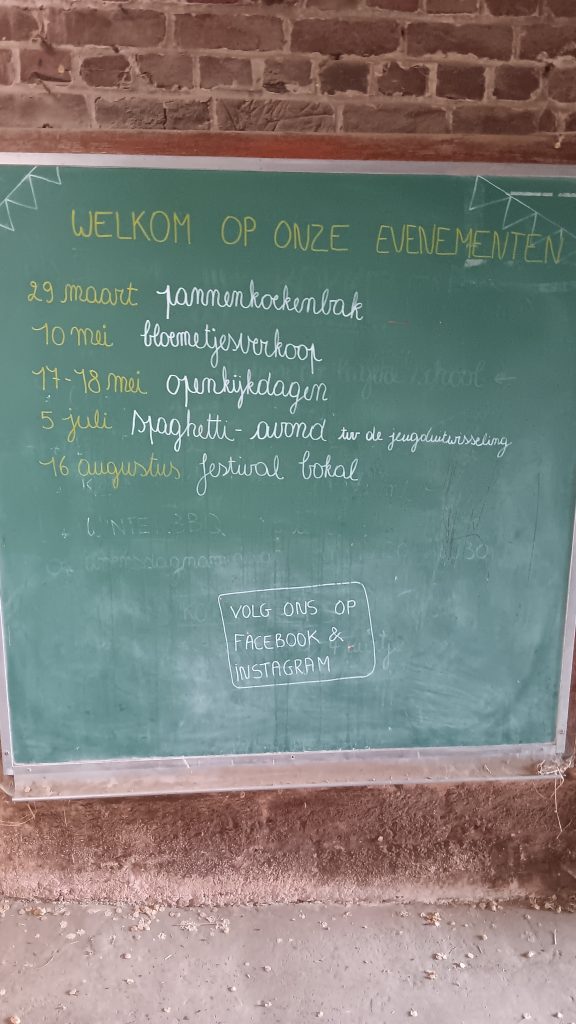 WELKOM OP ONZE EVENEMENTEN
29 maart pannenkoekenbak
10 mei bloemetjesverkoop
17-18 mei openkijkdagen
5 juli spaghetti-avond tvv de jeugduitwisseling
16 augustus festival bokal
VOLG ONS OP
FACEBOOK &
INSTAGRAM